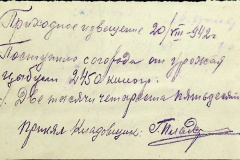 Приходное извещение 20/VIII-942 г
Поступило согорода от урожая
2450 килогр.
Две тысячи четыреста пятьдесят
Принял Кладовщик